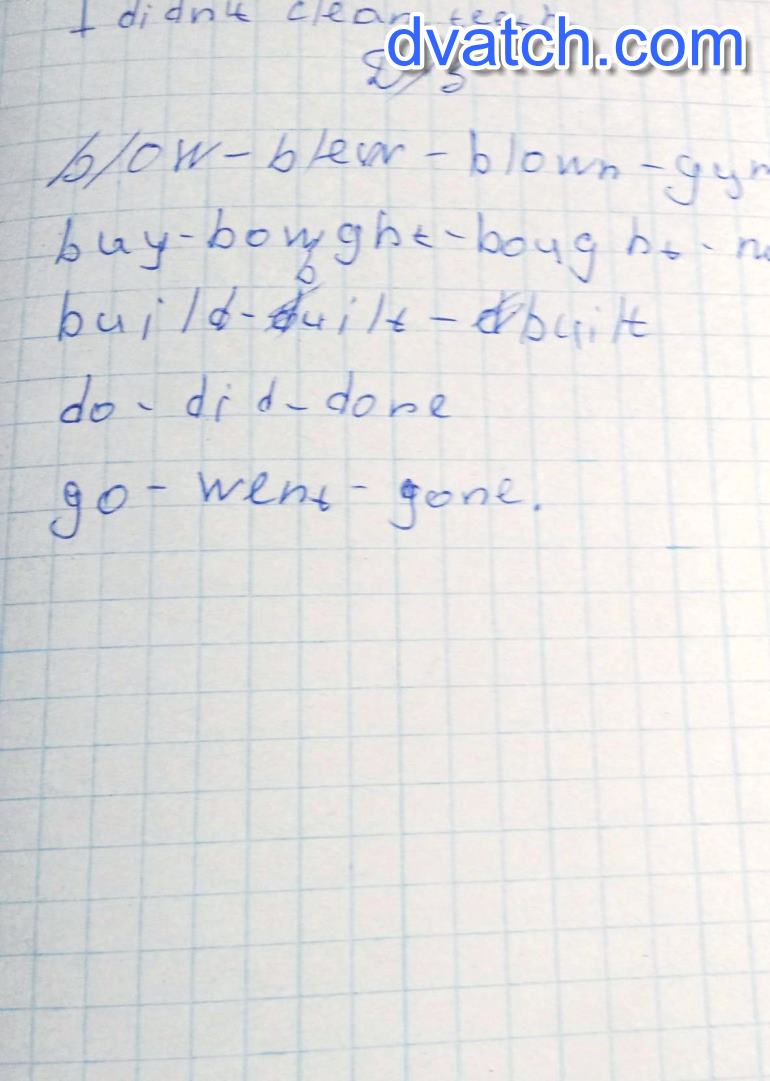 I didnt clean teeth
dvatch.com
Д/з
blow - blew - blown -
buy - bought - bought -
build - built - built
do - did - done
go - went - gone.